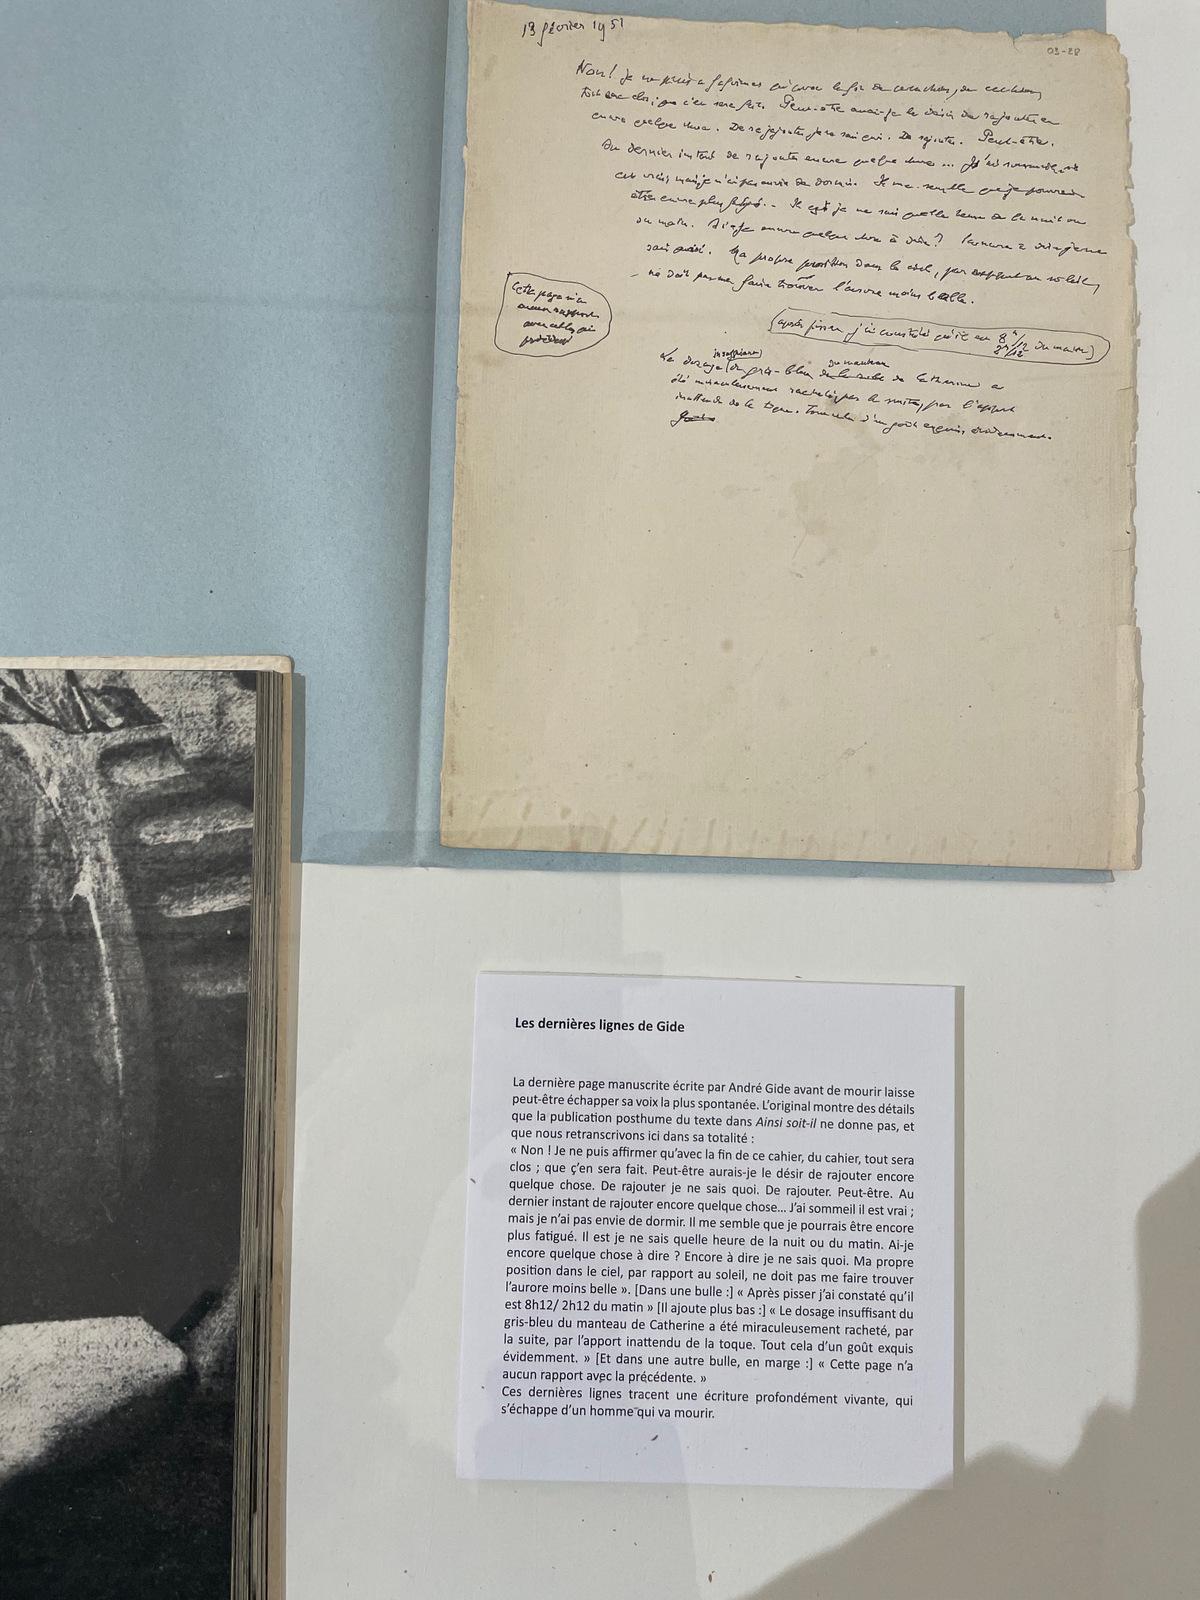 13 février 1951
03-28
Non ! je ne puis affirmer qu'avec la fin de ce cahier, du cahier,
tout sera clos ; que c'en sera fait. Peut-être aurais-je le désir de rajouter
encore quelque chose. De rajouter je ne sais quoi. De rajouter. Peut-être.
Au dernier instant de rajouter encore quelque chose... J'ai sommeil, il
est vrai ; mais je n'ai pas envie de dormir. Il me semble que je pourrais
être encore plus fatigué. Il est je ne sais quelle heure de la nuit ou
du matin. Ai-je encore quelque chose à dire ? Encore à dire je ne
sais quoi. Ma propre position dans le ciel, par rapport au soleil,
ne doit pas me faire trouver l'aurore moins belle.
Cette page n'a
aucun rapport
avec celle qui
précède
(après pisser j'ai constaté qu'il est 8h/12 2h/12 du matin)
Le dosage (insuffisant) du gris-bleu du manteau de Catherine a
été miraculeusement racheté, par la suite, par l'apport
inattendu de la toque. Tout cela d'un goût exquis, évidemment.
Les dernières lignes de Gide
La dernière page manuscrite écrite par André Gide avant de mourir laisse
peut-être échapper sa voix la plus spontanée. L'original montre des détails
que la publication posthume du texte dans Ainsi soit-il ne donne pas, et
que nous retranscrivons ici dans sa totalité :
« Non ! Je ne puis affirmer qu'avec la fin de ce cahier, du cahier, tout sera
clos ; que ç'en sera fait. Peut-être aurais-je le désir de rajouter encore
quelque chose. De rajouter je ne sais quoi. De rajouter. Peut-être. Au
dernier instant de rajouter encore quelque chose... J'ai sommeil il est vrai ;
mais je n'ai pas envie de dormir. Il me semble que je pourrais être encore
plus fatigué. Il est je ne sais quelle heure de la nuit ou du matin. Ai-je
encore quelque chose à dire ? Encore à dire je ne sais quoi. Ma propre
position dans le ciel, par rapport au soleil, ne doit pas me faire trouver
l'aurore moins belle ». [Dans une bulle :] « Après pisser j'ai constaté qu'il
est 8h12/ 2h12 du matin » [Il ajoute plus bas :] « Le dosage insuffisant du
gris-bleu du manteau de Catherine a été miraculeusement racheté, par
la suite, par l'apport inattendu de la toque. Tout cela d'un goût exquis
évidemment. » [Et dans une autre bulle, en marge :] « Cette page n'a
aucun rapport avec la précédente. »
Ces dernières lignes tracent une écriture profondément vivante, qui
s'échappe d'un homme qui va mourir.